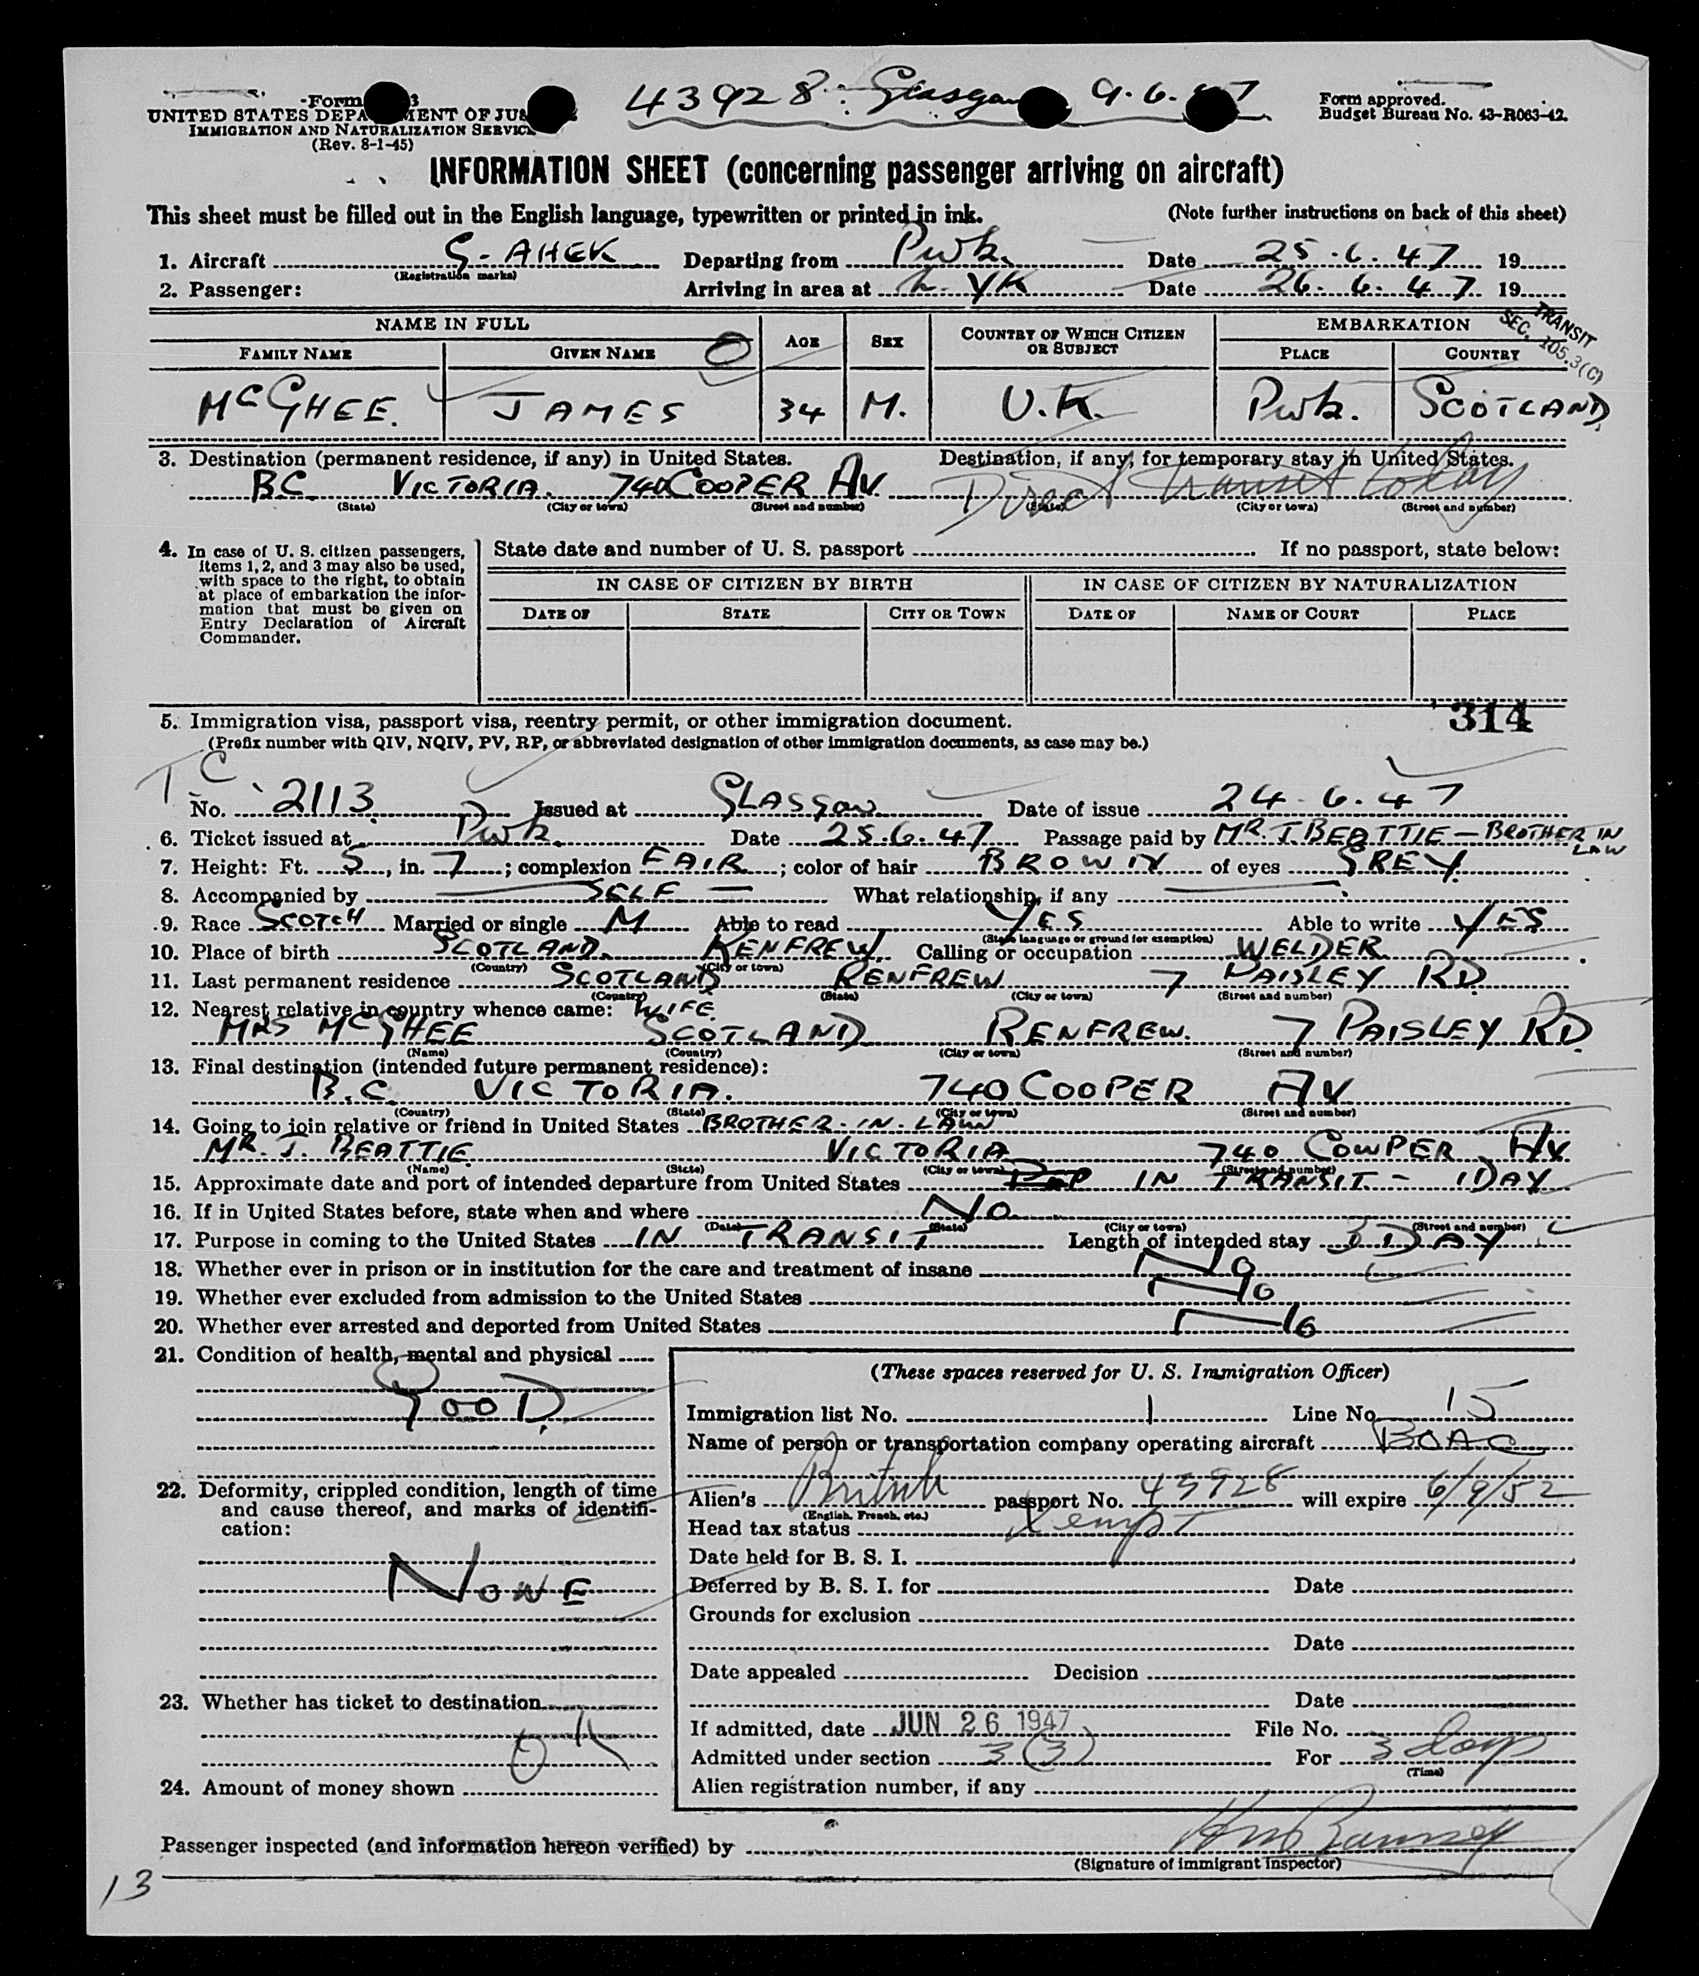 43928. Glasgow 9.6.47
Form 3
UNITED STATES DEPARTMENT OF JUSTICE
IMMIGRATION AND NATURALIZATION SERVICE
(Rev. 8-1-45)
Form approved.
Budget Bureau No. 43-R063-42.
INFORMATION SHEET (concerning passenger arriving on aircraft)
This sheet must be filled out in the English language, typewritten or printed in ink. (Note further instructions on back of this sheet)
1. Aircraft G-AHEK Departing from Pwk. Date 25.6.47 19
(Registration marks)
2. Passenger: Arriving in area at N.YK Date 26.6.47 19
TRANSIT
SEC. 105.3(C)
NAME IN FULL AGE SEX COUNTRY OF WHICH CITIZEN OR SUBJECT EMBARKATION
FAMILY NAME GIVEN NAME PLACE COUNTRY
McGHEE. JAMES 34 M. U.K. Pwk. SCOTLAND.
3. Destination (permanent residence, if any) in United States. Destination, if any, for temporary stay in United States.
BC VICTORIA. 740 COOPER AV. Direct transit today
(State) (City or town) (Street and number) (State) (City or town) (Street and number)
4. In case of U. S. citizen passengers, items 1, 2, and 3 may also be used, with space to the right, to obtain at place of embarkation the information that must be given on Entry Declaration of Aircraft Commander.
State date and number of U. S. passport If no passport, state below:
IN CASE OF CITIZEN BY BIRTH IN CASE OF CITIZEN BY NATURALIZATION
DATE OF STATE CITY OR TOWN DATE OF NAME OF COURT PLACE
314
5. Immigration visa, passport visa, reentry permit, or other immigration document.
(Prefix number with QIV, NQIV, PV, RP, or abbreviated designation of other immigration documents, as case may be.)
TC
No. 2113 Issued at GLASGOW Date of issue 24.6.47
6. Ticket issued at Pwk. Date 25.6.47 Passage paid by MR. J. BEATTIE - BROTHER IN LAW
7. Height: Ft. 5, in. 7; complexion FAIR; color of hair BROWN of eyes GREY.
8. Accompanied by SELF What relationship, if any
9. Race SCOTCH Married or single M Able to read YES Able to write YES
(State language or ground for exemption)
10. Place of birth SCOTLAND. RENFREW. Calling or occupation WELDER
(Country) (City or town)
11. Last permanent residence SCOTLAND RENFREW 7 PAISLEY RD
(Country) (State) (City or town) (Street and number)
12. Nearest relative in country whence came: WIFE.
MRS McGHEE SCOTLAND RENFREW. 7 PAISLEY RD.
(Name) (Country) (City or town) (Street and number)
13. Final destination (intended future permanent residence):
B.C. VICTORIA. 740 COOPER AV
(Country) (State) (City or town) (Street and number)
14. Going to join relative or friend in United States BROTHER-IN-LAW
MR. J. BEATTIE VICTORIA 740 COWPER AV
(Name) (State) (City or town) (Street and number)
15. Approximate date and port of intended departure from United States IN TRANSIT - 1 DAY
16. If in United States before, state when and where No
(Date) (State) (City or town) (Street and number)
17. Purpose in coming to the United States IN TRANSIT Length of intended stay 3 DAY
18. Whether ever in prison or in institution for the care and treatment of insane No
19. Whether ever excluded from admission to the United States No
20. Whether ever arrested and deported from United States No
21. Condition of health, mental and physical
GOOD.
22. Deformity, crippled condition, length of time and cause thereof, and marks of identification:
NONE
23. Whether has ticket to destination
OK
24. Amount of money shown
(These spaces reserved for U. S. Immigration Officer)
Immigration list No. 1 Line No. 15
Name of person or transportation company operating aircraft BOAC
Alien's British passport No. 43928 will expire 6/9/52
(English, French, etc.)
Head tax status Xempt
Date held for B. S. I.
Deferred by B. S. I. for Date
Grounds for exclusion
Date
Date appealed Decision
Date
If admitted, date JUN 26 1947 File No.
Admitted under section 3(3) For 3 days
(Time)
Alien registration number, if any
Passenger inspected (and information hereon verified) by
(Signature of immigrant inspector)
13